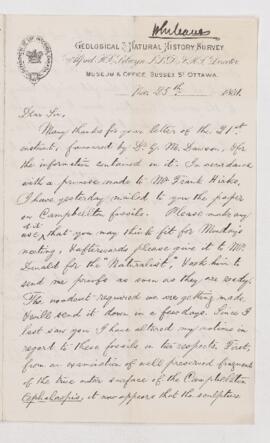 Whiteaves
GEOLOGICAL & NATURAL HISTORY SURVEY
Alfred R.C. Selwyn LL.D. F.R.S. Director
MUSEUM & OFFICE, SUSSEX ST OTTAWA.
Nov. 25th 1881.
Dear Sir,
Many thanks for your letter of the 21st
instant, favoured by Dr G. M. Dawson, & for
the information contained in it. In accordance
with a promise made to Mr Frank Hicks,
I have yesterday mailed to you the paper
on Campbellton fossils. Please make any
use of it that you may think fit for Monday's
meeting, & afterwards please give it to Mr
for the "Naturalist", & ask him to
send me proofs as soon as they are ready.
The woodcut required we are getting made,
& will send it down in a few days. Since I
last saw you I have altered my notions in
regard to these fossils in two respects. First,
from an examination of well preserved fragments
of the true outer surface of the Campbellton
Cephalaspis, it now appears that the sculpture